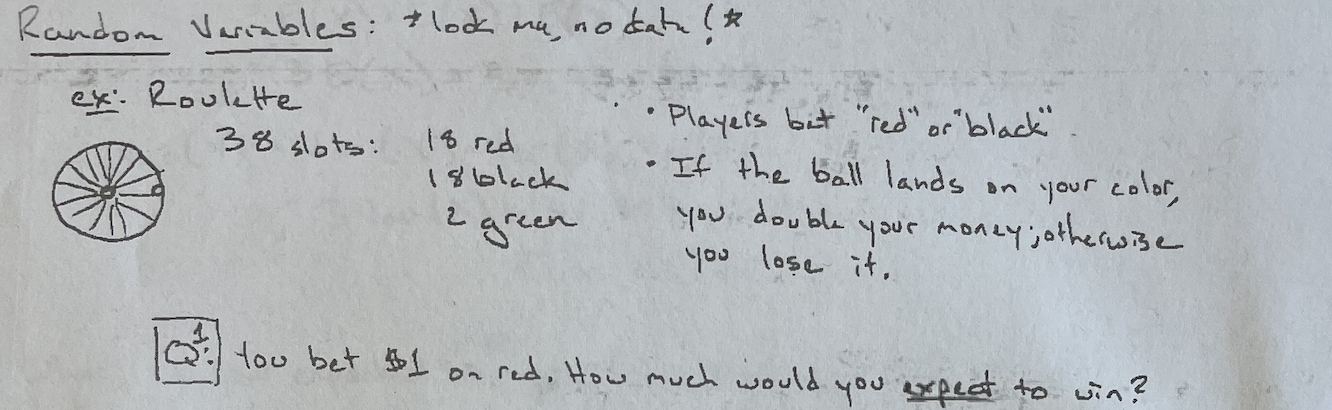 Random Variables: *look ma, no data!*
ex: Roulette
38 slots: 18 red
18 black
2 green
• Players bet "red" or "black".
• If the ball lands on your color,
you double your money; otherwise
you lose it.
Q1: You bet $1 on red. How much would you expect to win?